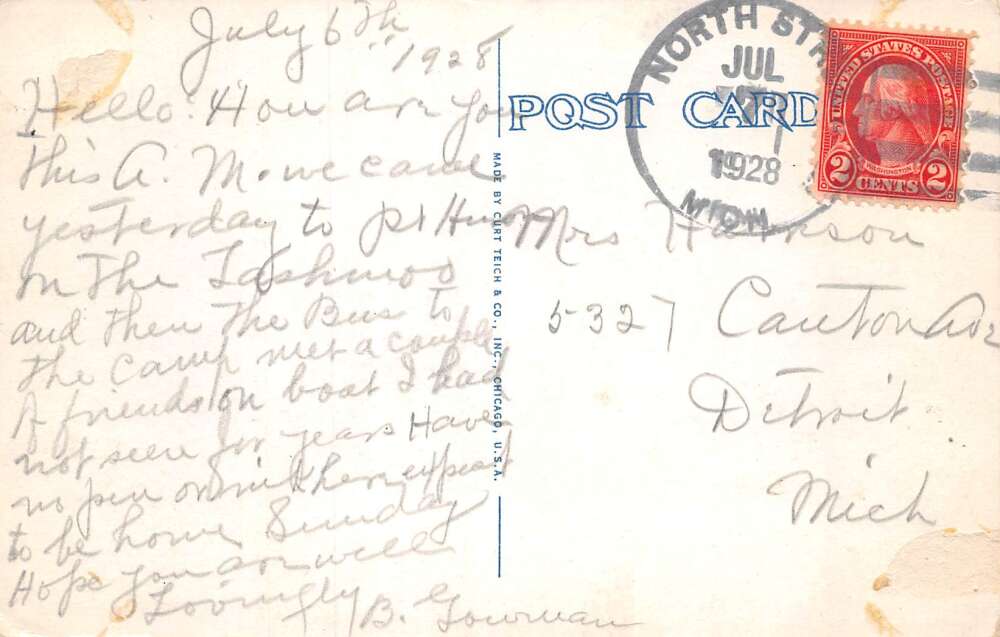 July 6th
" 1928
Hello: How are you
this A. M. we came
yesterday to Pt Huron
on The Tashmoo
and Then The Bus to
The Camp met a couple
of friends on boat I had
not seen for years Have
no pen or ink here expect
to be home Sunday
Hope you are well
Lovingly
B. Gowman
POST CARD
MADE BY CURT TEICH & CO., INC., CHICAGO, U.S.A.
NORTH
JUL
1928
MICH
UNITED STATES POSTAGE
WASHINGTON
2 CENTS 2
Mrs
5327 Canton Ave
Detroit
Mich